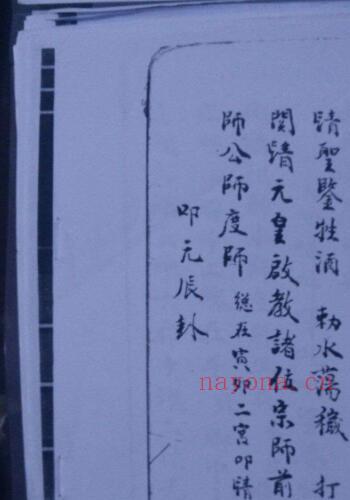 請聖鑒牲酒 勅水蕩穢 打
関請元皇啟教諸位宗師前
師公師度師 總在寅卯二宮叩請
叩元辰卦
nayona.cn